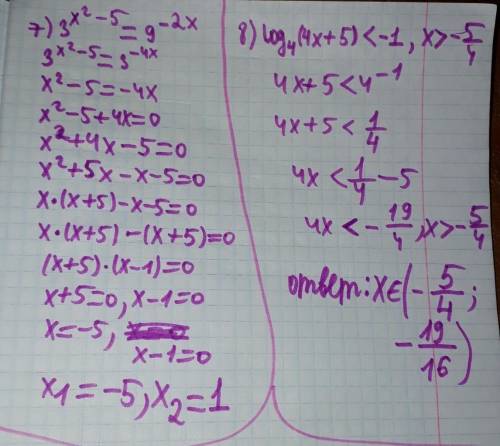 7) 3^(x² - 5) = 9^(-2x)
3^(x² - 5) = 3^(-4x)
x² - 5 = -4x
x² - 5 + 4x = 0
x² + 4x - 5 = 0
x² + 5x - x - 5 = 0
x·(x+5) - x - 5 = 0
x·(x+5) - (x+5) = 0
(x+5)·(x-1) = 0
x+5=0, x-1=0
x=-5,
x-1=0
x₁ = -5, x₂ = 1
8) log₄(4x+5) < -1, x > -5/4
4x+5 < 4⁻¹
4x+5 < 1/4
4x < 1/4 - 5
4x < -19/4, x > -5/4
ответ: x∈(-5/4;
-19/16)